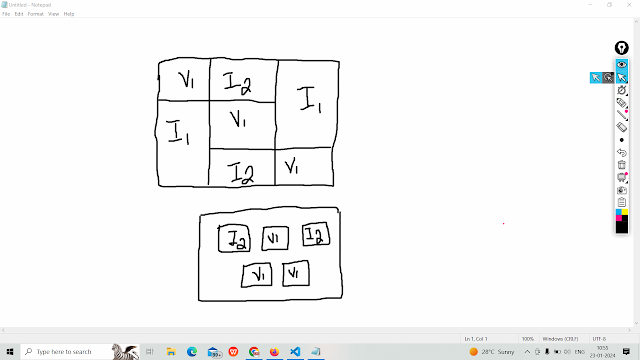 Untitled - Notepad
File Edit Format View Help
V1 I2 I1
I1 V1
I2 V1
I2 V1 I2
V1 V1
Ln 1, Col 1 100% Windows (CRLF) UTF-8
Type here to search 99+ 28°C Sunny ENG 10:55 23-01-2024